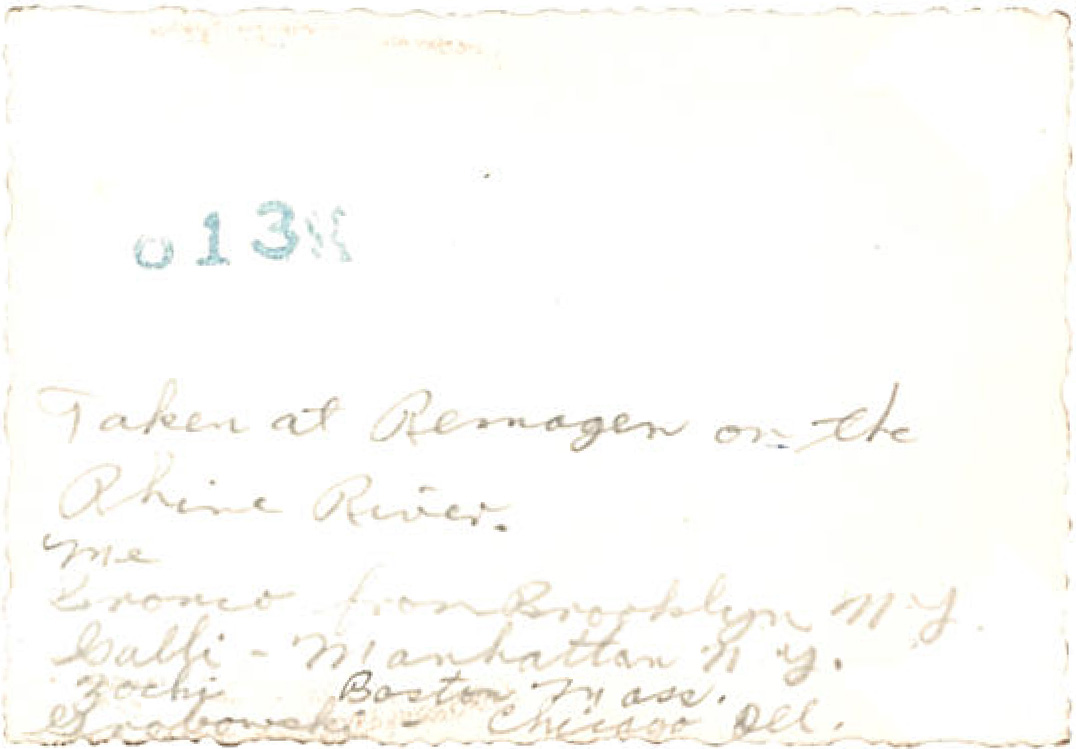 013
Taken at Remagen on the
Rhine River.
Me
from Brooklyn N.Y.
Galli - Manhattan N.Y.
Zochi Boston Mass.
Grabowski - Chicago Ill.